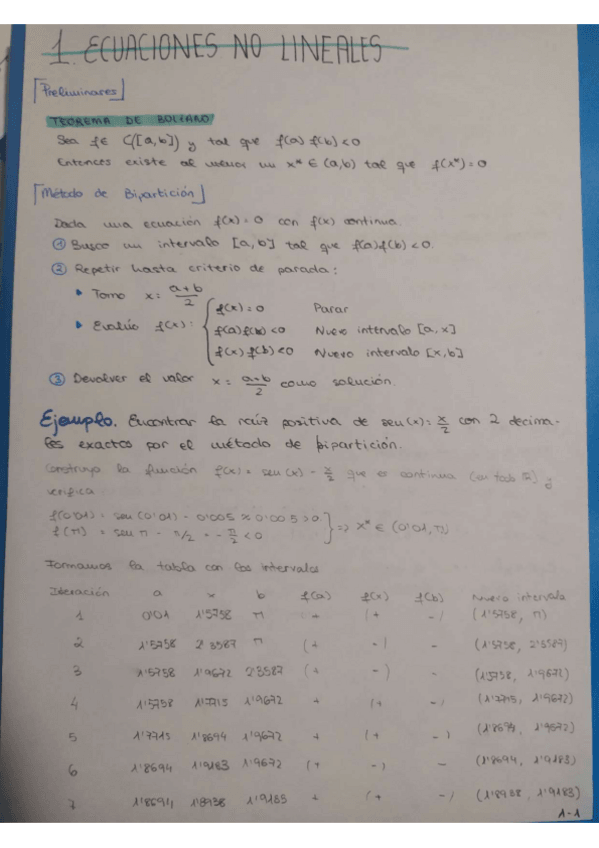 1. ECUACIONES NO LINEALES
[Preliminares]
TEOREMA DE BOLZANO
Sea f ∈ C([a,b]) y tal que f(a) f(b) < 0
Entonces existe al menos un x* ∈ (a,b) tal que f(x*) = 0
[Método de Bipartición]
Dada una ecuación f(x) = 0 con f(x) continua.
① Busco un intervalo [a,b] tal que f(a)f(b) < 0.
② Repetir hasta criterio de parada:
• Tomo x = a+b/2
• Evalúo f(x): { f(x) = 0 Parar
f(a)f(x) < 0 Nuevo intervalo [a,x]
f(x)f(b) < 0 Nuevo intervalo [x,b]
③ Devolver el valor x = a+b/2 como solución.
Ejemplo. Encontrar la raíz positiva de sen(x) = x/2 con 2 decima-
les exactos por el método de bipartición.
Construyo la función f(x) = sen(x) - x/2 que es continua (en todo ℝ) y
verifica
f(0'01) = sen(0'01) - 0'005 ≈ 0'005 > 0
f(π) = sen π - π/2 = -π/2 < 0 } => x* ∈ (0'01, π)
Formamos la tabla con los intervalos
Iteración a x b f(a) f(x) f(b) Nuevo intervalo
1 0'01 1'5758 π + (+ -) (1'5758, π)
2 1'5758 2'3587 π (+ -) - (1'5758, 2'3587)
3 1'5758 1'9672 2'3587 (+ -) - (1'5758, 1'9672)
4 1'5758 1'7715 1'9672 + (+ -) (1'7715, 1'9672)
5 1'7715 1'8694 1'9672 + (+ -) (1'8694, 1'9672)
6 1'8694 1'9183 1'9672 (+ -) - (1'8694, 1'9183)
7 1'8694 1'8938 1'9183 + (+ -) (1'8938, 1'9183)
1-1